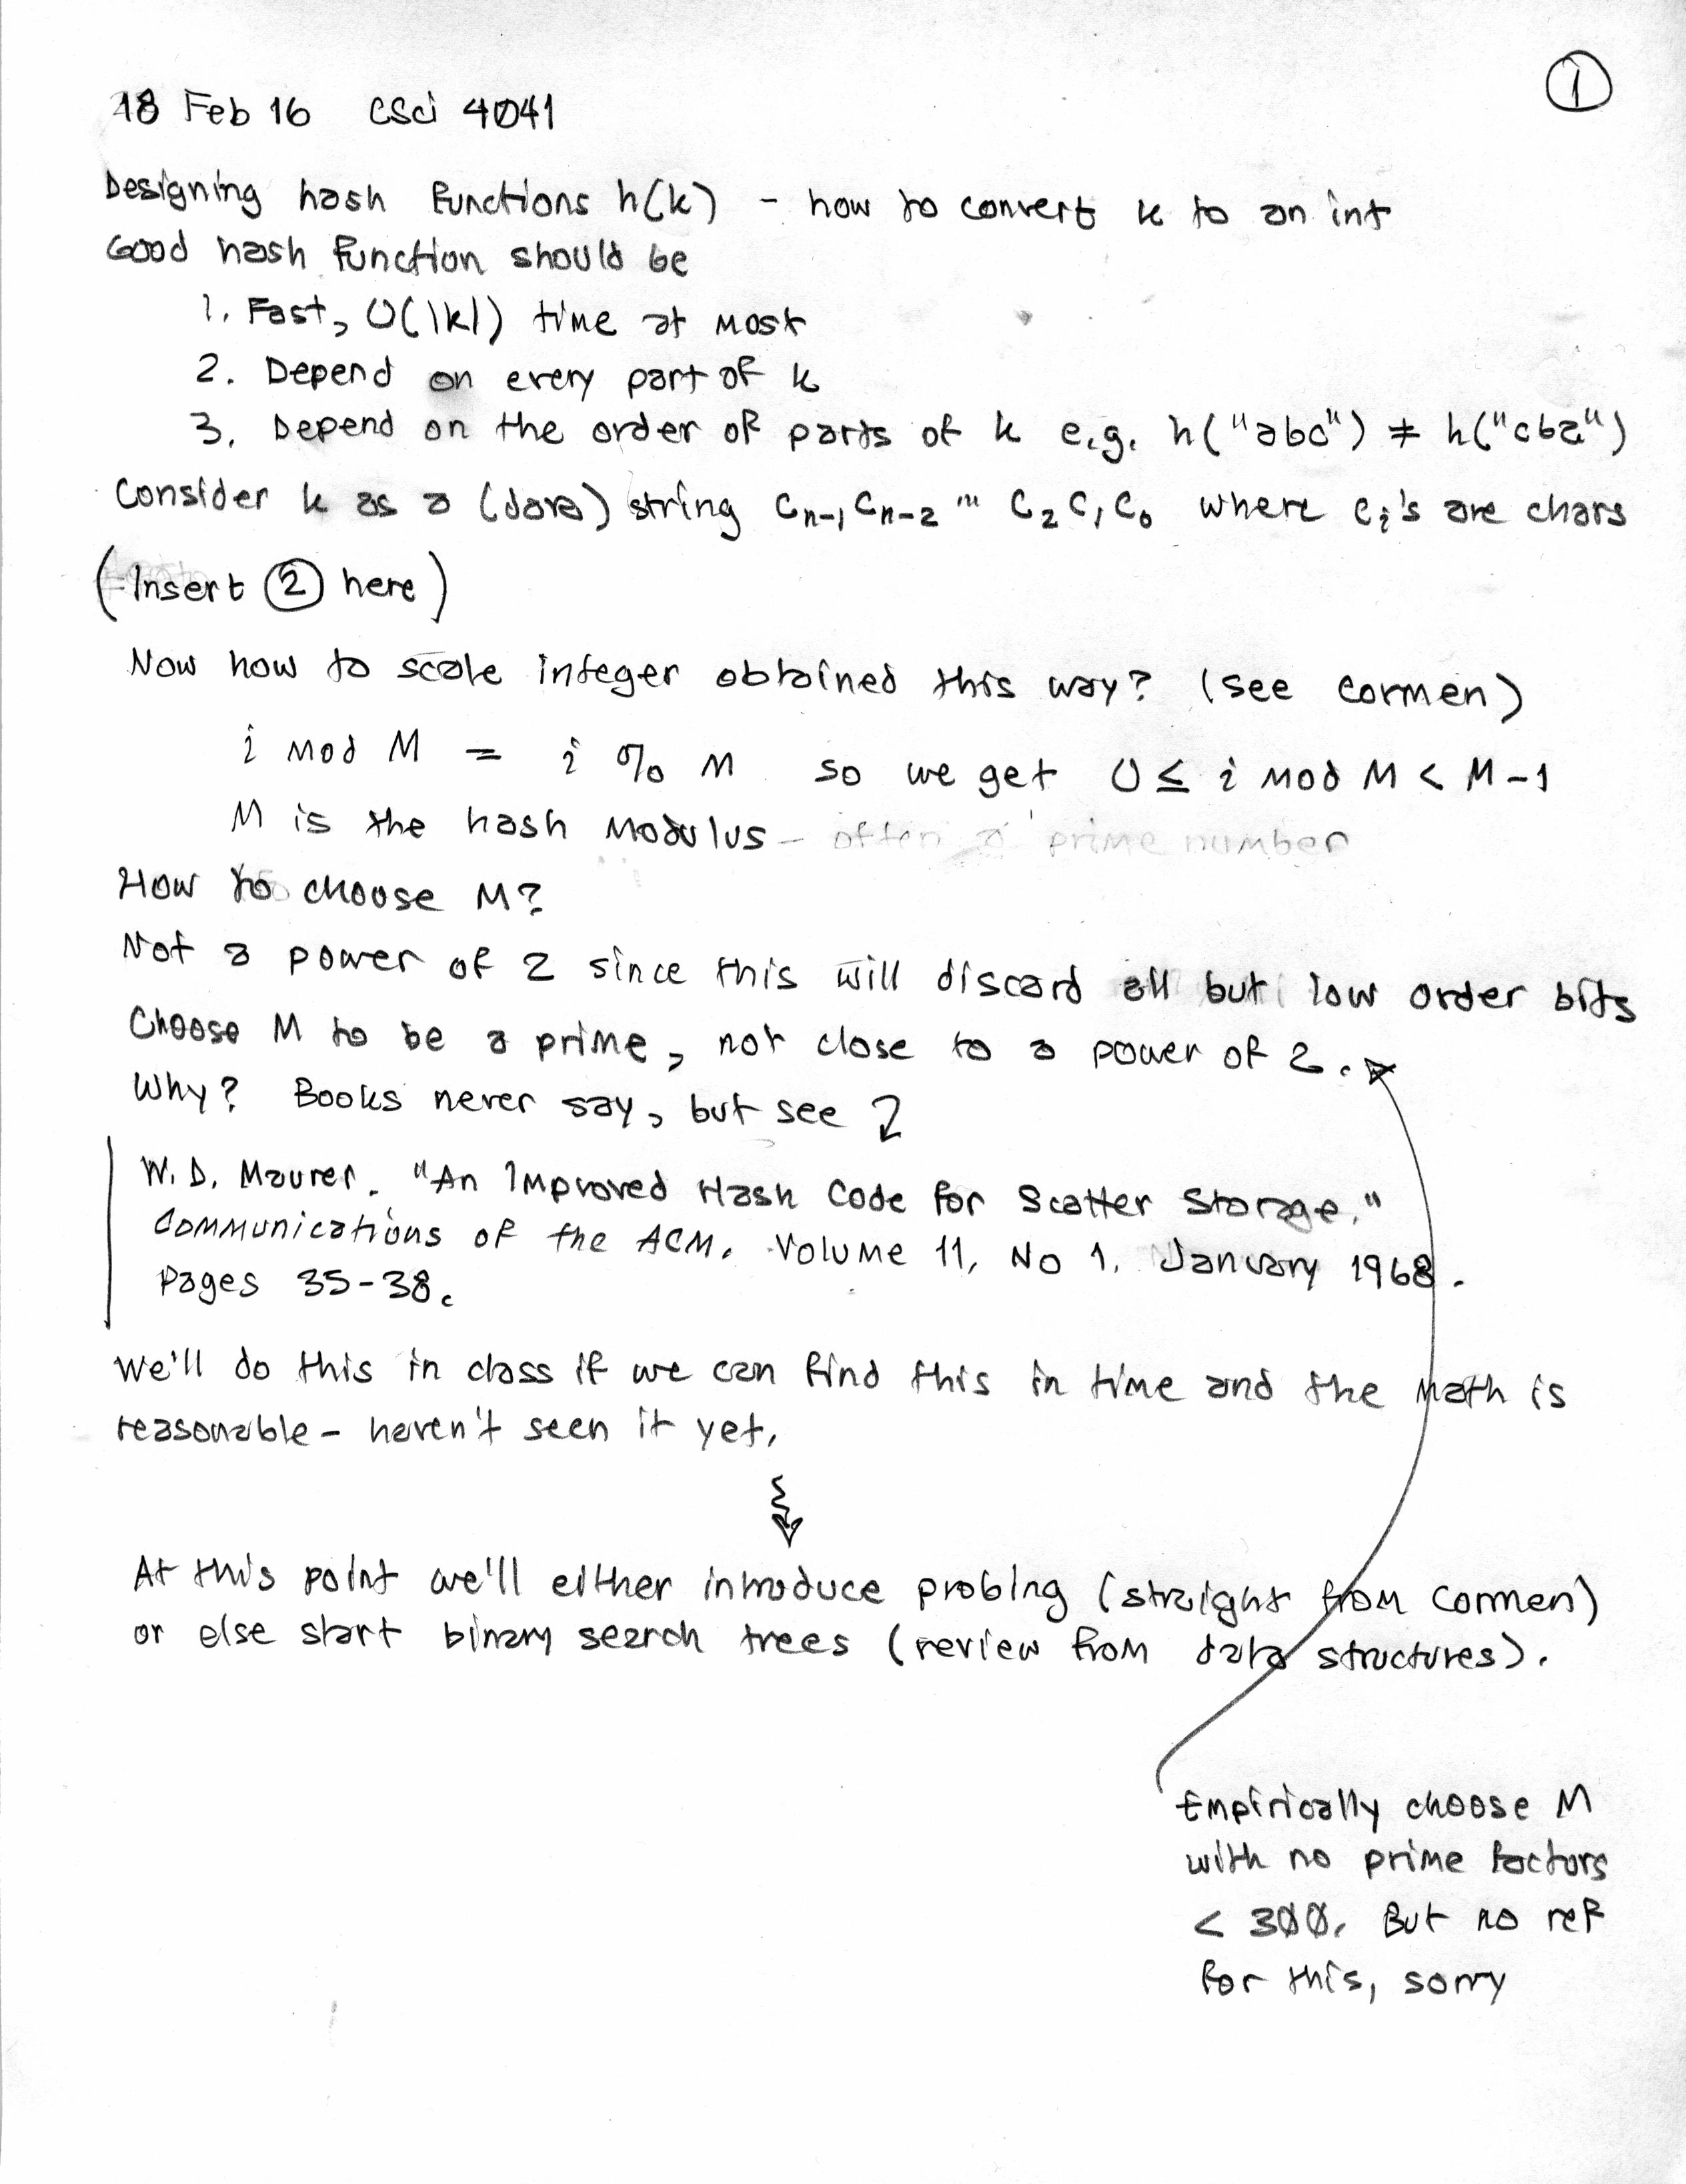 ①
18 Feb 16 CSci 4041
Designing hash functions h(k) - how to convert k to an int
Good hash function should be
1. Fast, O(|k|) time at most
2. Depend on every part of k
3. Depend on the order of parts of k e.g. h("abc") ≠ h("cba")
Consider k as a (Java) string Cn-1 Cn-2 ... C2 C1 C0 where ci's are chars
(Insert ② here)
Now how to scale integer obtained this way? (see Cormen)
i mod M = i % M so we get 0 ≤ i mod M < M-1
M is the hash modulus - often a prime number
How to choose M?
Not a power of 2 since this will discard all but low order bits
Choose M to be a prime, not close to a power of 2.
Why? Books never say, but see
W. D. Maurer. "An Improved Hash Code for Scatter Storage."
Communications of the ACM. Volume 11, No 1. January 1968.
Pages 35-38.
We'll do this in class if we can find this in time and the math is
reasonable - haven't seen it yet.
At this point we'll either introduce probing (straight from Cormen)
or else start binary search trees (review from data structures).
Empirically choose M
with no prime factors
< 300. But no ref
for this, sorry